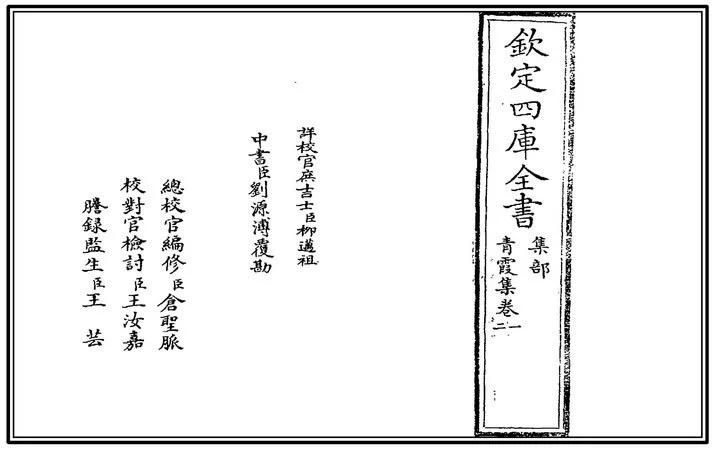 欽定四庫全書
集部
青霞集卷一二
詳校官庶吉士臣柳邁祖
中書臣劉源溥覆勘
總校官編修臣倉聖脈
校對官檢討臣王汝嘉
謄錄監生臣王芸